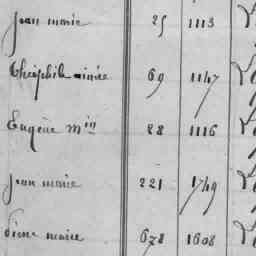 Jean marie 25 1113
Théophile aînée 69 1147
Eugène 28 1116
Jean marie 221 1749
marie 678 1608